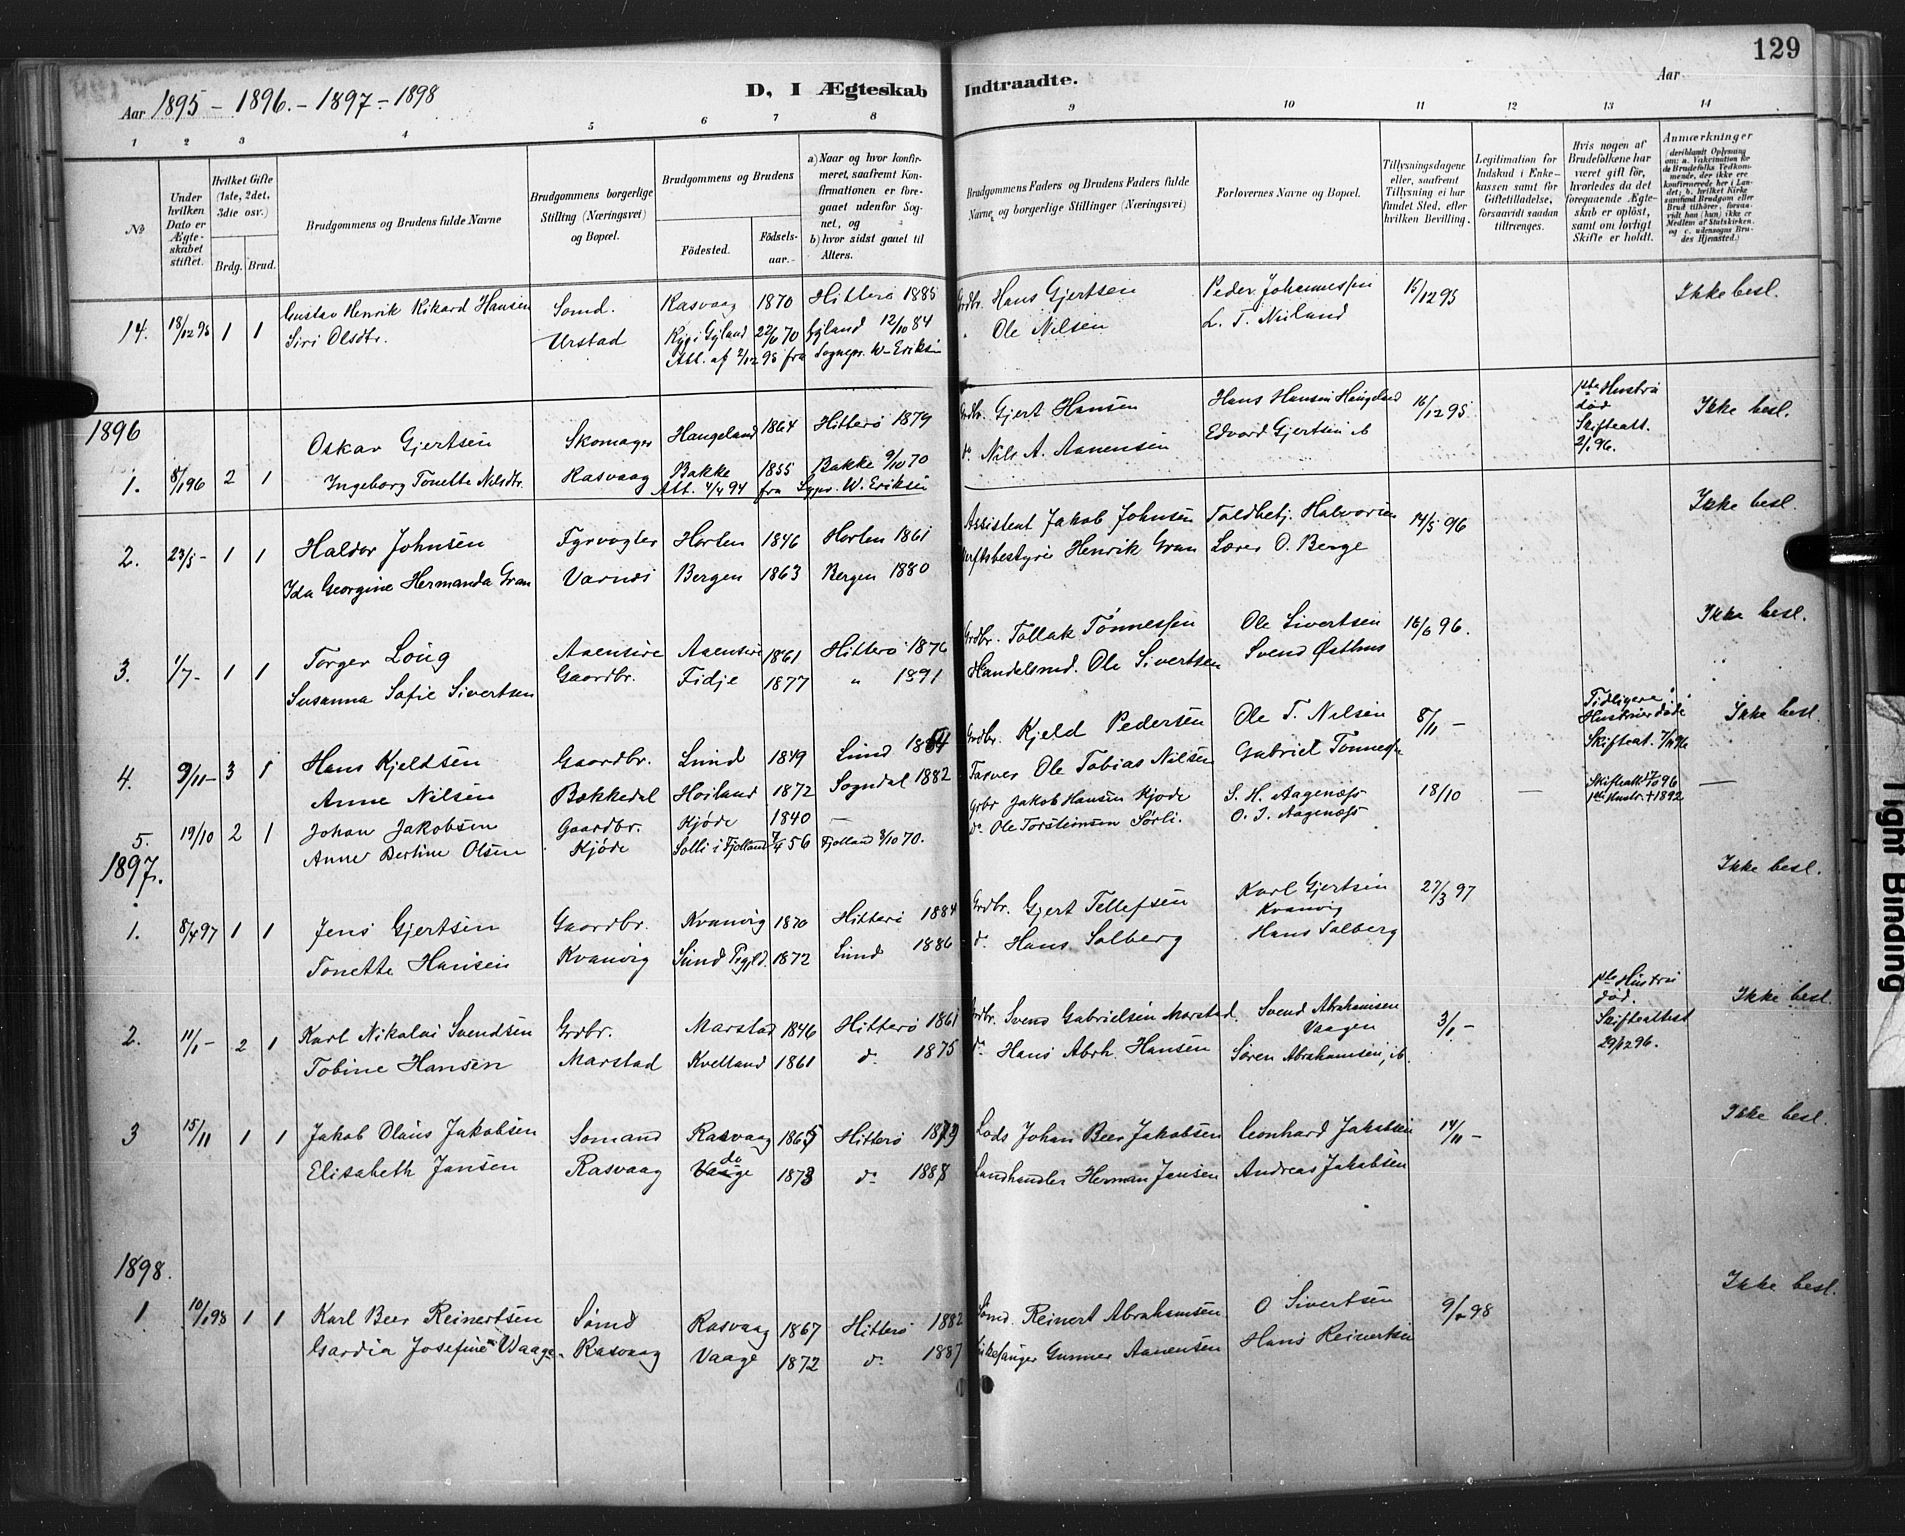 129
Aar 1895 - 1896. - 1897 - 1898
D, I Ægteskab Indtraadte.
Aar
1 2 3 4 5 6 7 8 9 10 11 12 13 14
No
Under hvilken Dato er Ægteskabet stiftet.
Hvilket Gifte (1ste, 2det, 3die osv.)
Brdg. Brud.
Brudgommens og Brudens fulde Navne
Brudgommens borgerlige Stilling (Næringsvei) og Bopæl.
Brudgommens og Brudens
Fødested. Fødselsaar.
a) Naar og hvor konfirmeret, saafremt Konfirmationen er foregaaet udenfor Sognet, og
b) hvor sidst gaaet til Alters.
Brudgommens Faders og Brudens Faders fulde Navne og borgerlige Stillinger (Næringsvei)
Forlovernes Navne og Bopæl.
Tillysningsdagene eller, saafremt Tillysning ei har fundet Sted, efter hvilken Bevilling.
Legitimation for Indskud i Enkekassen samt for Giftetilladelse, forsaavidt saadan tiltrænges.
Hvis nogen af Brudefolkene har været gift før, hvorledes da det foregaaende Ægteskab er opløst, samt om lovligt Skifte er holdt.
Anmærkninger
14. 18/12 95 1 1 Gustav Henrik Rikard Hansen Sømd. Rasvaag 1870 Hitterø 1885 Grdbr. Hans Gjertsen Peder Johannessen 15/12 95 Ikke besl.
Siri Olsdtr. Urstad Gyland 22/6 70 Gyland 12/10 84 Ole Nilsen L. T. Niiland
Att. af 2/12 95 fra Sognepr. W. Eriksen
1896
1. 8/1 96 2 1 Oskar Gjertsen Skomager Haugeland 1864 Hitterø 1879 Grdbr. Gjert Hansen Hans Hansen Haugeland 16/12 95 1ste Hustru død Skifteatt. 2/1 96. Ikke besl.
Ingeborg Tonette Nilsdtr. Rasvaag Bakke 1855 Bakke 9/10 70 do Nils A. Aanensen Edvard Gjertsen ib
Att. 4/4 94 fra Sgpr. W. Eriksen
2. 23/5 - 1 1 Haldor Johnsen Fyrvogter Horten 1846 Horten 1861 Assistent Jakob Johnsen Toldbetj. Halvorsen 14/5 96 Ikke besl.
Ida Georgine Hermanda Gran Varnæs Bergen 1863 Bergen 1880 Henrik Gran Lærer O. Berge
3. 1/7 - 1 1 Torger Loug Aaensire Aaensire 1861 Hitterø 1876 Grdbr. Tollak Tønnessen Ole Sivertsen 16/6 96. Ikke besl.
Susanna Sofie Sivertsen Gaardbr. Fidje 1877 " 1891 Handelsmd. Ole Sivertsen Svend Østhus
4. 9/11 - 3 1 Hans Kjeldsen Gaardbr. Lund 1849 Lund 1864 Grdbr. Kjeld Pedersen Ole T. Nilsen 8/11 - Tidligere Hustruer døde Skifteat. Ikke besl.
Anne Nilsen Bækkedal Hoiland 1872 Sogndal 1882 Farver Ole Tobias Nilsen Gabriel Tønnes
5. 19/10 2 1 Johan Jakobsen Gaardbr. Kjøde 1840 — Grbr Jakob Hansen Kjøde S. H. Aagenæs 18/10 — 1ste Hustr. † 1892 —
Anne Bertine Olsen Kjøde Solli i Fjotland 7/4 56 Fjotland 2/10 70. do Ole Torsteinsen Sørli. O. J. Aagenæs
1897.
1. 8/4 97 1 1 Jens Gjertsen Gaardbr. Kvanvig 1870 Hitterø 1884 Grdbr. Gjert Tellefsen Karl Gjertsen Kvanvig 27/3 97 Ikke besl.
Tonette Hansen Kvanvig Lund 1872 Lund 1886 do Hans Solberg Hans Solberg
2. 11/1 - 2 1 Karl Nikolai Svendsen Grdbr. Marstad 1846 Hitterø 1861 Grdbr. Svend Gabrielsen Marstad Svend Abrahamsen Vaagen 3/1 - 1ste Hustru død. Skifteattest 29/12 96. Ikke besl.
Tobine Hansen Marstad Kvelland 1861 do 1875 do Hans Abrh. Hansen Søren Abrahamsen, ib.
3 15/11 1 1 Jakob Olaus Jakobsen Sømand Rasvaag 1865 Hitterø 1879 Lods Johan Beer Jakobsen Leonhard Jakobsen 14/11 - Ikke besl.
Elisabeth Jansen Rasvaag do 1873 do 1888 Landhandler Herman Jansen Andreas Jakobsen
1898.
1 10/1 98 1 1 Karl Beer Reinertsen Sømd Rasvaag 1867 Hitterø 1882 Sømd. Reinert Abrahamsen O Sivertsen 9/1 98 Ikke besl.
Gardia Josefine Waage Rasvaag Vaage 1872 do 1887 Kirkesanger Gunner Aanensen Hans Reinertsen
Tight Binding